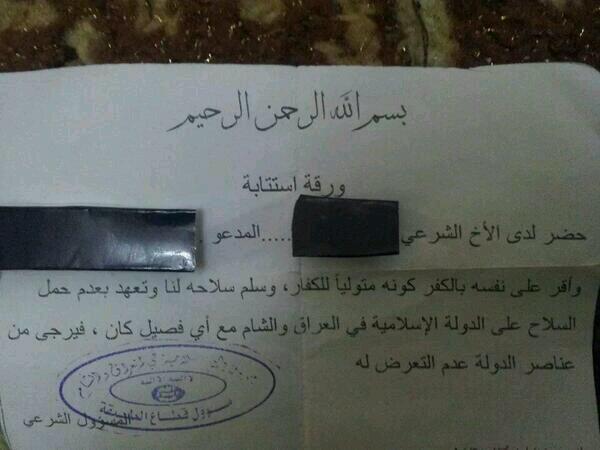 بسم الله الرحمن الرحيم
ورقة استتابة
حضر لدى الأخ الشرعي .....المدعو .
وأقر على نفسه بالكفر كونه متولياً للكفار، وسلم سلاحه لنا وتعهد بعدم حمل
السلاح على الدولة الإسلامية في العراق والشام مع أي فصيل كان ، فيرجى من
عناصر الدولة عدم التعرض له
لا إله إلا الله
مسؤول قطاع
المسؤول الشرعي